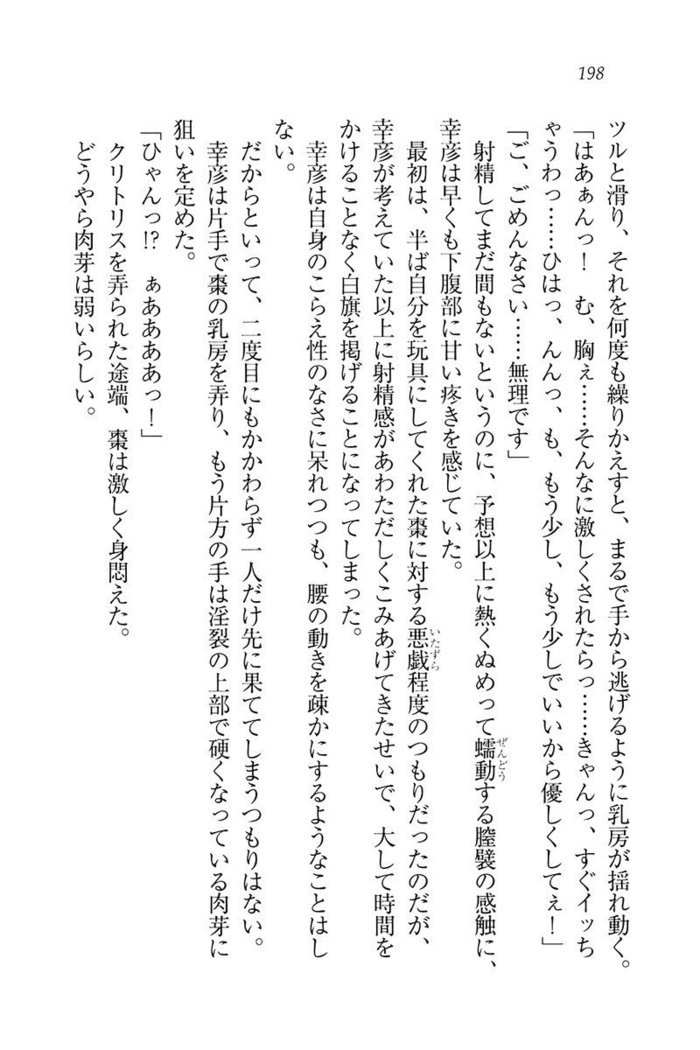 198
ツルと滑り、それを何度も繰りかえすと、まるで手から逃げるように乳房が揺れ動く。
「はあぁんっ！　む、胸ぇ……そんなに激しくされたらっ……きゃんっ、すぐイッち
ゃうわっ……ひはっ、んんっ、も、もう少し、もう少しでいいから優しくしてぇ！」
「ご、ごめんなさい……無理です」
射精してまだ間もないというのに、予想以上に熱くぬめって蠕動する膣襞の感触に、
幸彦は早くも下腹部に甘い疼きを感じていた。
最初は、半ば自分を玩具にしてくれた棗に対する悪戯程度のつもりだったのだが、
幸彦が考えていた以上に射精感があわただしくこみあげてきたせいで、大して時間を
かけることなく白旗を掲げることになってしまった。
幸彦は自身のこらえ性のなさに呆れつつも、腰の動きを疎かにするようなことはし
ない。
だからといって、二度目にもかかわらず一人だけ先に果ててしまうつもりはない。
幸彦は片手で棗の乳房を弄り、もう片方の手は淫裂の上部で硬くなっている肉芽に
狙いを定めた。
「ひゃんっ!?　ぁああああっ！」
クリトリスを弄られた途端、棗は激しく身悶えた。
どうやら肉芽は弱いらしい。